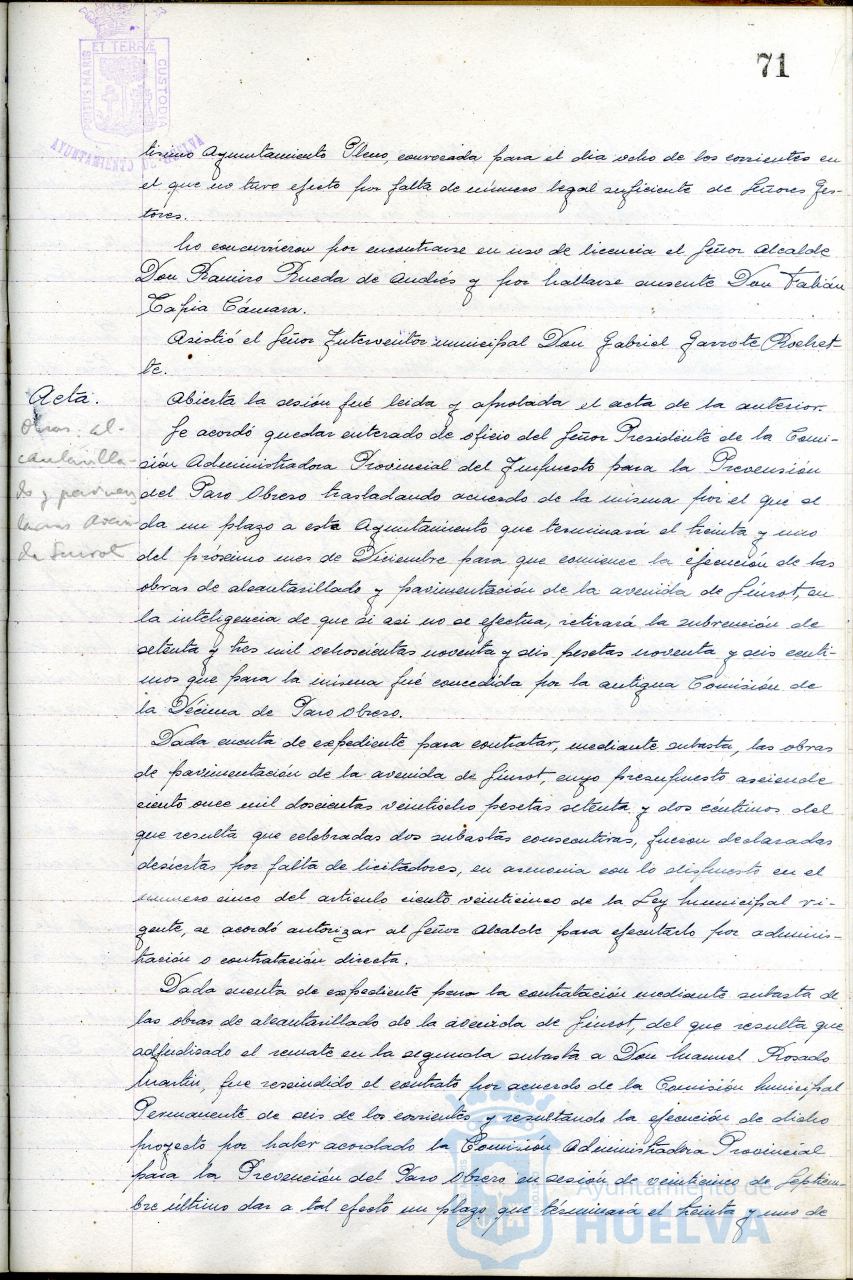 71
PORTUS MARIS ET TERRÆ CUSTODIA
AYUNTAMIENTO DE HUELVA
tísimo Ayuntamiento Pleno, convocada para el dia ocho de los corrientes en
el que no tuvo efecto por falta de número legal suficiente de Señores Ges-
tores.
No concurrieron por encontrarse en uso de licencia el Señor Alcalde
Don Ramiro Rueda de Andrés y por hallarse ausente Don Fabián
Tapia Cámara.
Asistió el Señor Interventor municipal Don Gabriel Garrote Rochet-
te.
Acta.
Abierta la sesión fué leida y aprobada el acta de la anterior.
Obras. al-
cantarilla-
do y pavimen
Aveni
da Guirot
Se acordó quedar enterado de oficio del Señor Presidente de la Comi-
sión Administradora Provincial del Impuesto para la Prevensión
del Paro Obrero trasladando acuerdo de la misma por el que se
da un plazo a este Ayuntamiento que terminará el treinta y uno
del próximo mes de Diciembre para que comience la ejecución de las
obras de alcantarillado y pavimentación de la avenida de Guirot, en
la inteligencia de que si asi no se efectua, retirará la subvención de
setenta y tres mil ochocientas noventa y seis pesetas noventa y seis centi-
mos que para la misma fué concedida por la antigua Comisión de
la Décima de Paro Obrero.
Dada cuenta de expediente para contratar, mediante subasta, las obras
de pavimentación de la avenida de Guirot, cuyo presupuesto asciende
ciento once mil doscientas veintiocho pesetas setenta y dos céntimos del
que resulta que celebradas dos subastas consecutivas, fueron declaradas
desiertas por falta de licitadores, en armonia con lo dispuesto en el
número cinco del articulo ciento veinticinco de la Ley Municipal vi-
gente, se acordó autorizar al Señor Alcalde para ejecutarlo por adminis-
tración o contratación directa.
Dada cuenta de expediente para la contratación mediante subasta de
las obras de alcantarillado de la avenida de Guirot, del que resulta que
adjudisado el remate en la segunda subasta a Don Manuel Rosado
Martin, fue rescindido el contrato por acuerdo de la Comisión Municipal
Permanente de seis de los corrientes y resultando la ejecución de dicho
proyecto por haber acordado la Comisión Administradora Provincial
para la Prevención del Paro Obrero en sesión de veinticinco de Septiem-
bre último dar a tal efecto un plazo que terminará el treinta y uno de
Ayuntamiento de
HUELVA